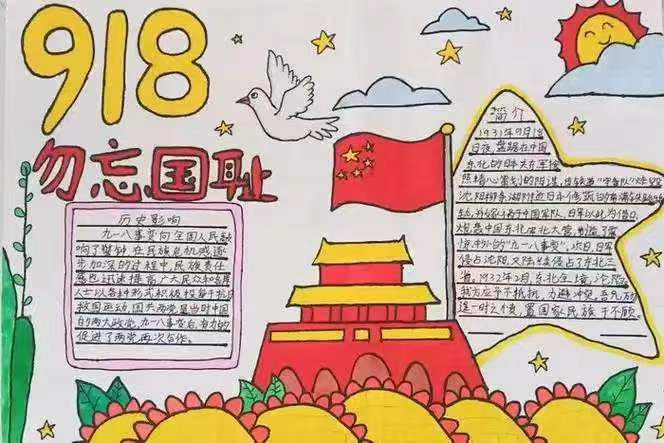 918
勿忘国耻
历史影响
九一八事变向全国人民敲
响了警钟.在民族危机逐
步加深的过程中,民族责任
感也迅速提高广大民众和各界
人士以各种形式积极投身于抗日
救国运动,国共两党是当时中国
的两大政党,九一八事变后,有力的
促进了两党再次合作。
简介
1931年9月18
日夜,盘踞在中国
东北的日本关东军按
照精心策划的阴谋,
沈阳柳条湖附近日本修筑的
中国军队,日军以此为借口,
炮轰中国东北军北大营,制造了震
惊中外的"九一八事变",次日,日军
侵占沈阳,又陆续侵占了东北三
省。1932年2月,东北全境沦陷。
不抵抗,力避冲突,吾兄勿
逞一时之愤,置国家民族于不顾。